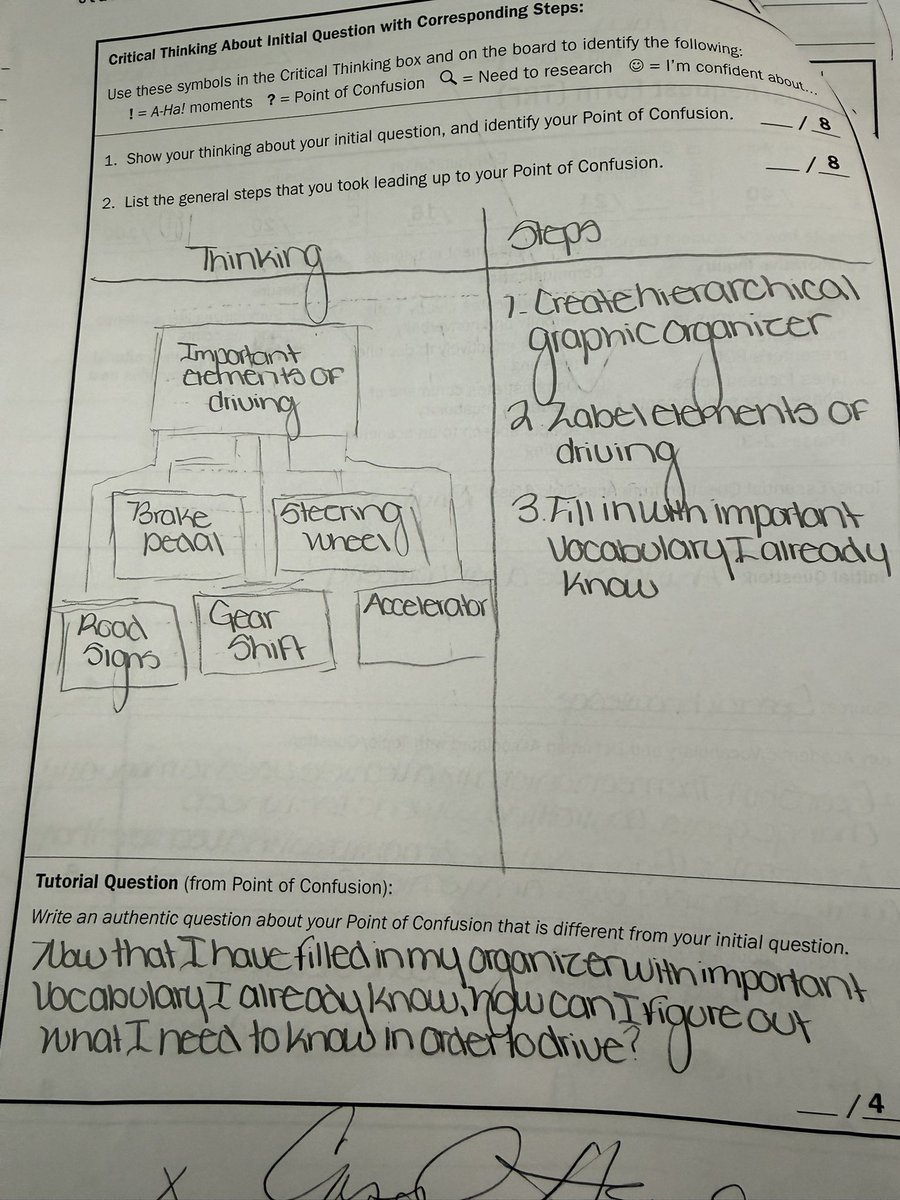 Critical Thinking About Initial Question with Corresponding Steps:
Use these symbols in the Critical Thinking box and on the board to identify the following:
! = A-Ha! moments ? = Point of Confusion = Need to research ☺ = I'm confident about...
1. Show your thinking about your initial question, and identify your Point of Confusion. __/ 8
2. List the general steps that you took leading up to your Point of Confusion. __/ 8
Thinking
Important
elements of
driving
Brake
pedal
Steering
wheel
Road
Signs
Gear
Shift
Accelerator
Steps
1. Create hierarchical
graphic organizer
2. Label elements of
driving
3. Fill in with important
vocabulary I already
know
Tutorial Question (from Point of Confusion):
Write an authentic question about your Point of Confusion that is different from your initial question.
Now that I have filled in my organizer with important
vocabulary I already know, how can I figure out
what I need to know in order to drive?
__/ 4
X